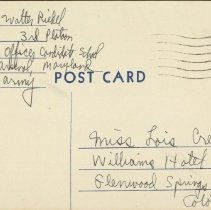 Walter Riekel
3rd Platoon
Officer Candidate School
Arsenal, Maryland
Army
POST CARD
Miss Lois Cre
Williams Hotel
Glenwood Springs
Colo